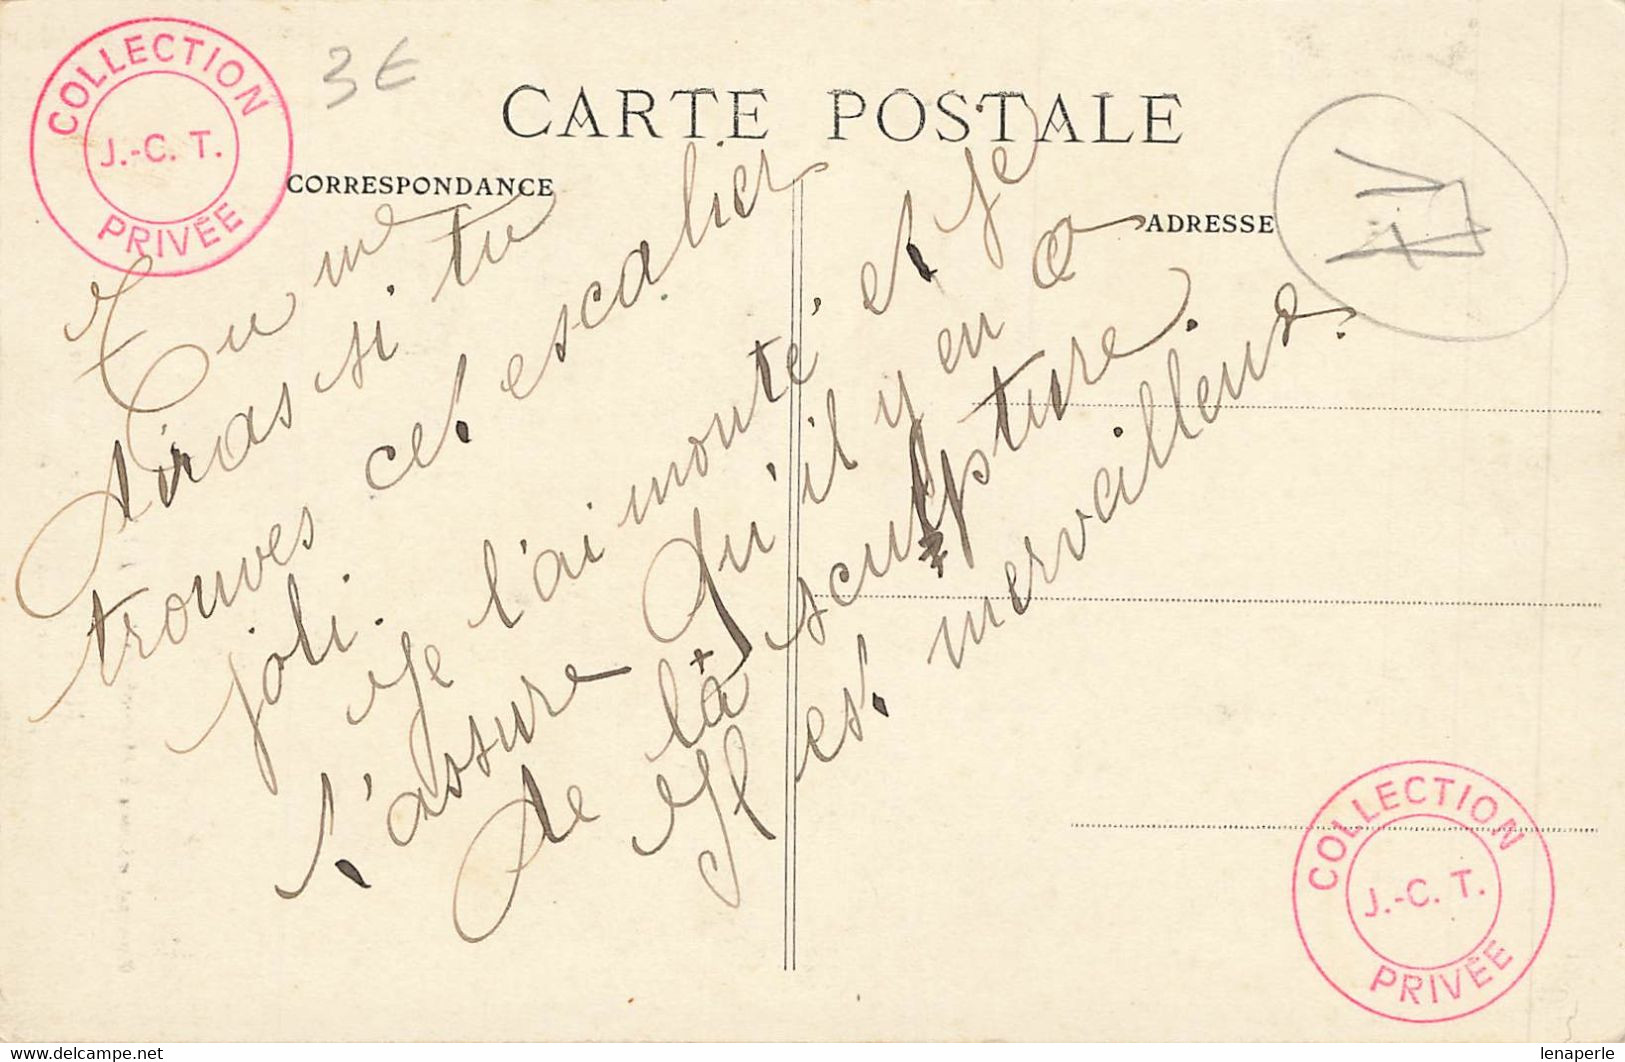 COLLECTION
J.-C. T.
PRIVÉE
3€
CARTE POSTALE
CORRESPONDANCE
ADRESSE
Tu me
diras si tu
trouves cet escalier
joli.
Je l'ai monté, et je
t'assure qu'il y en a
de la sculpture.
Il est merveilleux.
COLLECTION
J.-C. T.
PRIVÉE
lenaperle